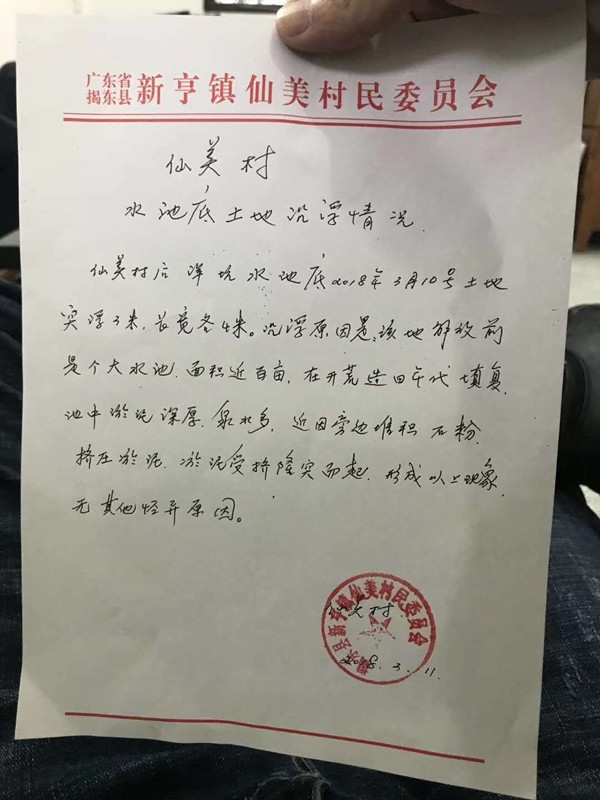 广东省
揭东县 新亨镇仙美村民委员会
仙美村
水池底土地沉浮情况
仙美村后洋坑水池底2018年3月10号土地
突浮3米，长宽各4米。沉浮原因是：该地解放前
是个大水池，面积近百亩，在开荒造田年代填复，
池中淤泥深厚，泉水多，近因旁边堆积石粉，
挤压淤泥，淤泥受挤隆突而起，形成以上现象，
无其他怪异原因。
仙美村
揭东县新亨镇仙美村民委员会
2018.3.11